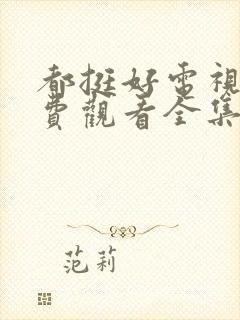 都挺好電視
費觀看全集
范莉